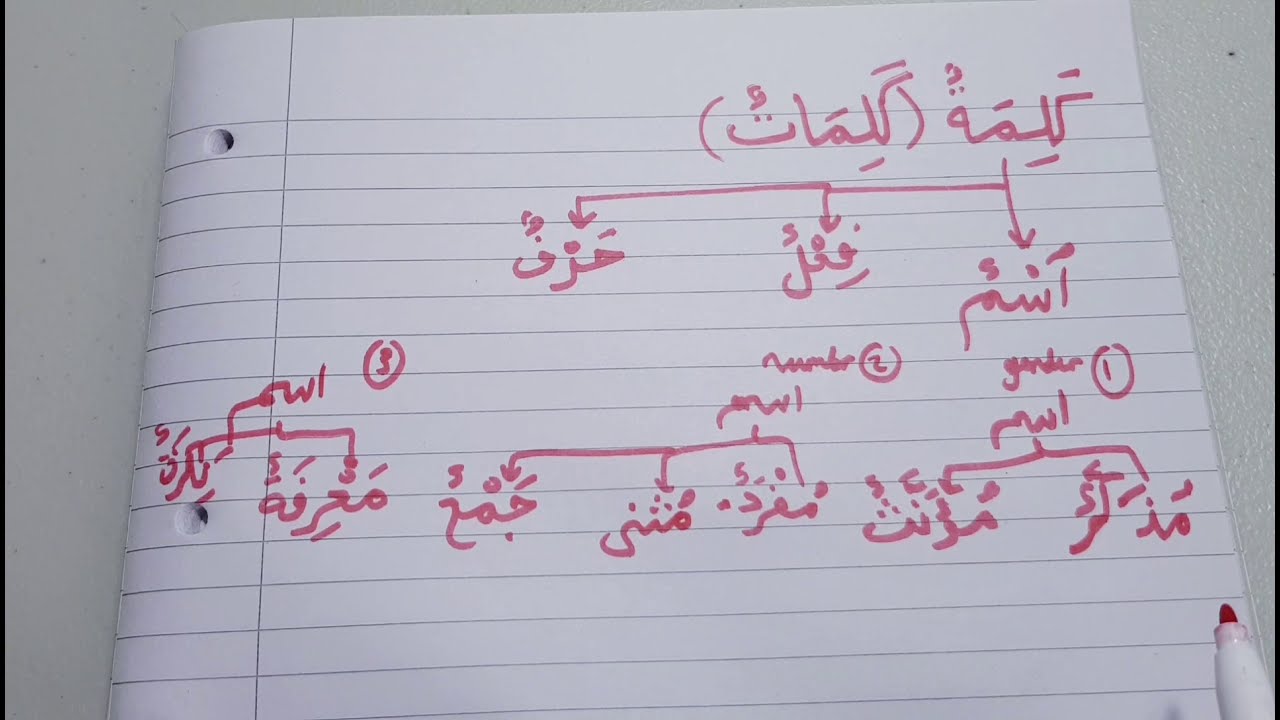 كَلِمَةٌ (كَلِمَاتٌ)
اَسْمٌ فِعْلٌ حَرْفٌ
① gender ② number ③
اسم اسم اسم
مُذَكَّرٌ مُؤَنَّثٌ مُفْرَدٌ مُثَنى جَمْعٌ مَعْرِفَةٌ نَكِرَةٌ